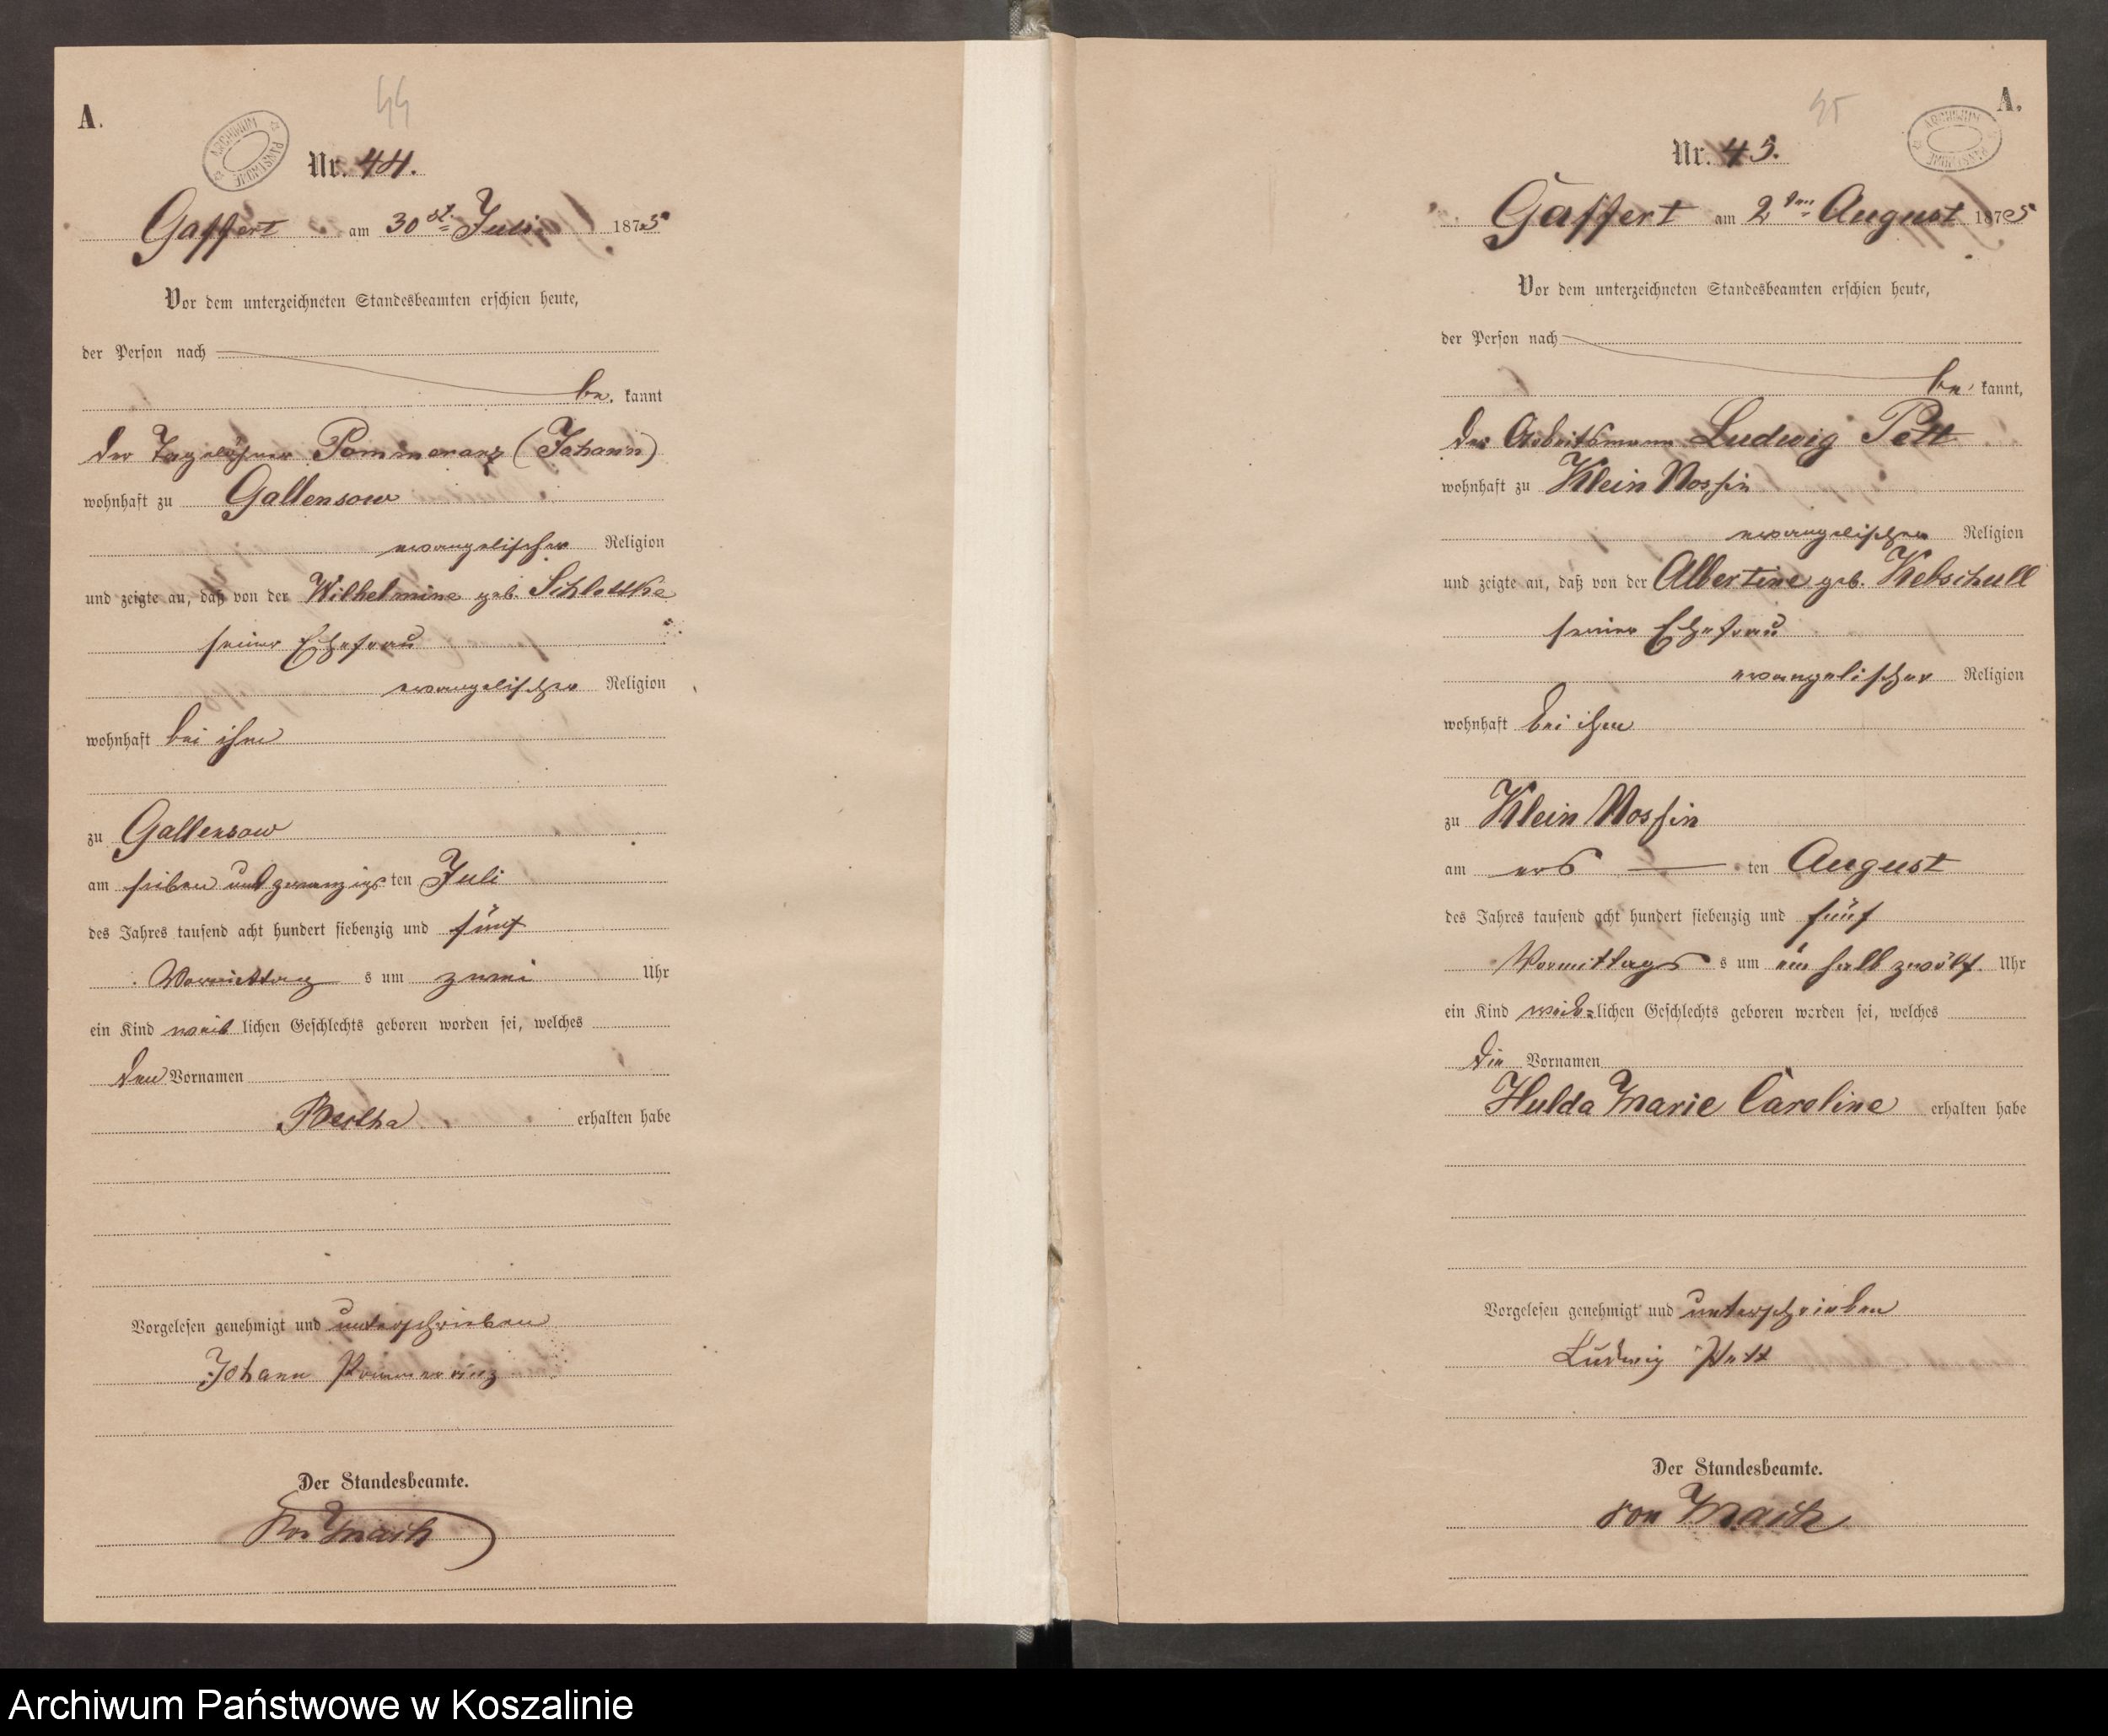 44
A.
ARCHIWUM PAŃSTWOWE
Nr. 44.
Gaffert am 30st. Juli 1875
Vor dem unterzeichneten Standesbeamten erschien heute,
der Person nach
be. kannt
der Tagelöhner Pommeranz (Johann)
wohnhaft zu Gallensow
evangelischer Religion
und zeigte an, daß von der Wilhelmine geb. Schlottke
seiner Ehefrau
evangelischer Religion
wohnhaft bei ihm
zu Gallensow
am sieben und zwanzigsten Juli
des Jahres tausend acht hundert siebenzig und fünf
Vormittag s um zwei Uhr
ein Kind weib lichen Geschlechts geboren worden sei, welches
den Vornamen
Bertha erhalten habe
Vorgelesen genehmigt und unterschrieben
Johann Pommeranz
Der Standesbeamte.
von Mach
45
A.
ARCHIWUM PAŃSTWOWE
Nr. 45.
Gaffert am 2ten August 1875
Vor dem unterzeichneten Standesbeamten erschien heute,
der Person nach
be kannt,
der Arbeitsmann Ludwig Pett
wohnhaft zu Klein Nossin
evangelischer Religion
und zeigte an, daß von der Albertine geb. Kebschull
seiner Ehefrau
evangelischer Religion
wohnhaft bei ihm
zu Klein Nossin
am ers ten August
des Jahres tausend acht hundert siebenzig und fünf
Vormittags s um ein halb zwölf. Uhr
ein Kind weib=lichen Geschlechts geboren worden sei, welches
die Vornamen
Hulda Marie Caroline erhalten habe
Vorgelesen genehmigt und unterschrieben
Ludwig Pett
Der Standesbeamte.
von Mach
Archiwum Państwowe w Koszalinie